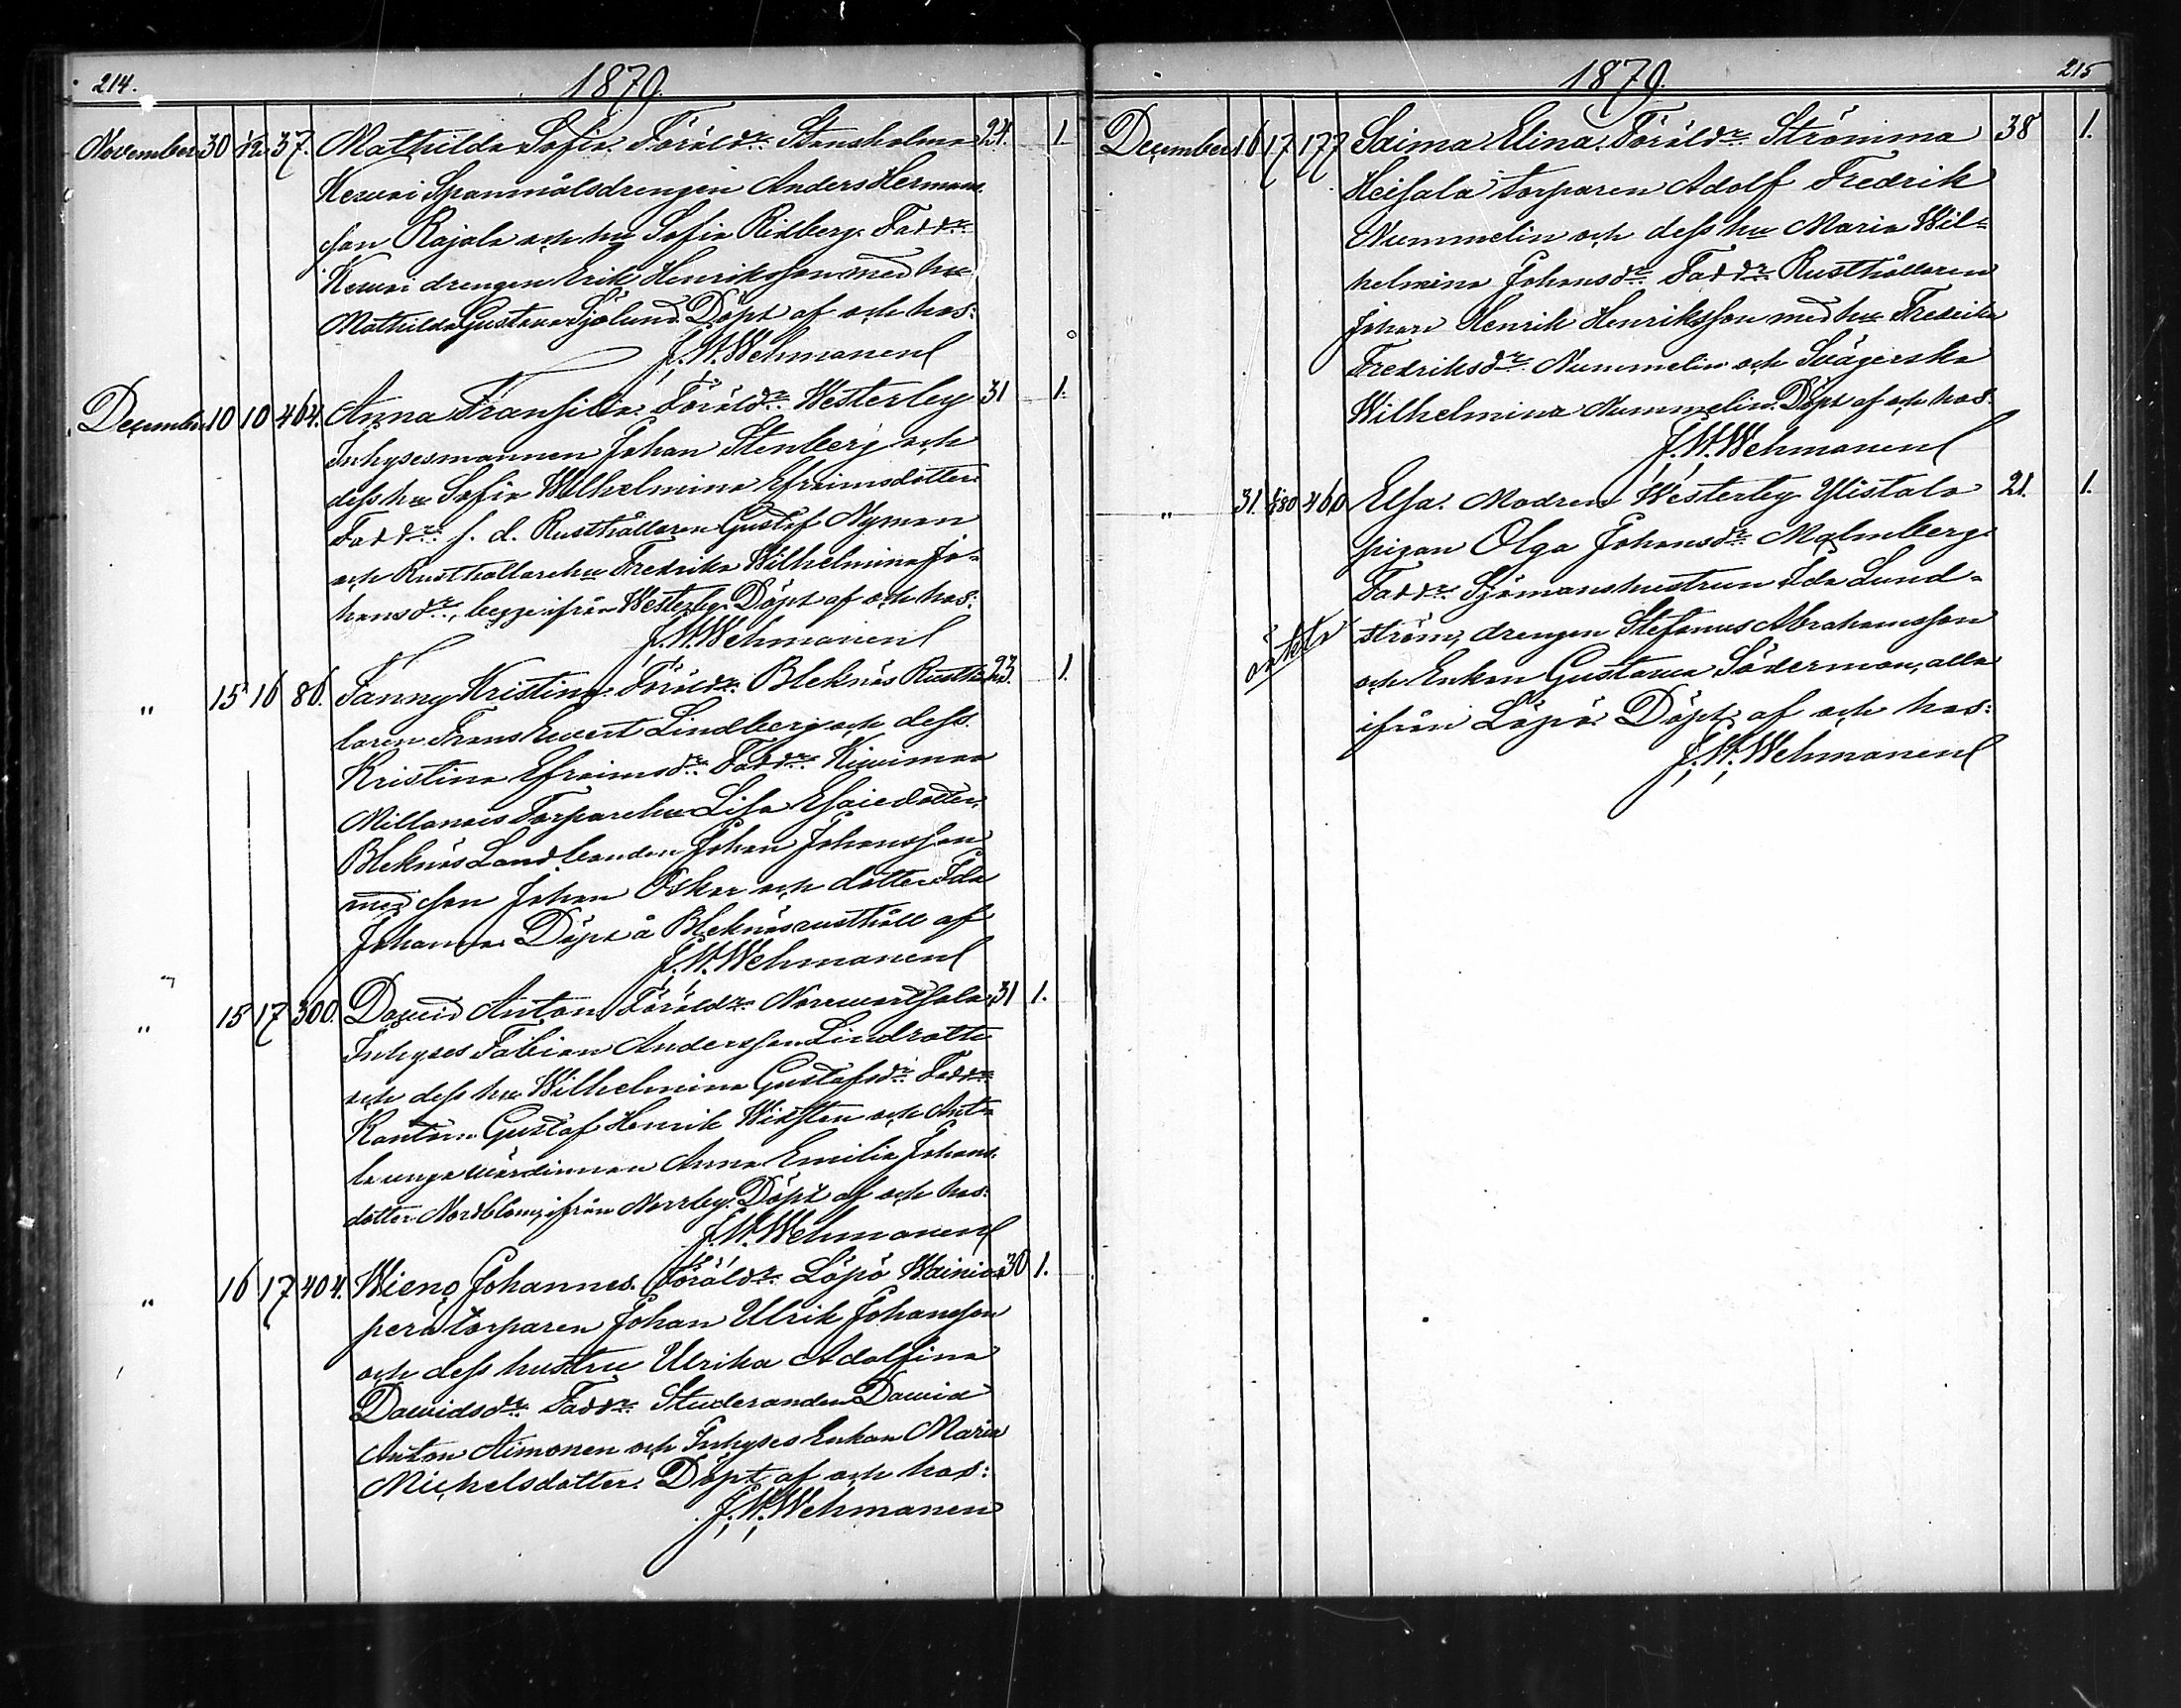 214.
1879.
November 30 37. Mathilda Sofia. Föräldr: Stensholms 24. 1
Kerwoi Spanmålsdrengen Anders Hermans
son Rajala och hu Sofia Ridberg. Faddr:
drengen Erik Henriksson med hu
Mathilda Gustava Sjölund. Döpt af och hos:
J. W. Wehmanen
December 10 10 464. Anna Fransilia. Föräldr: Westerby 31 1.
Inhysesmannen Johan Stenberg och
dess hu Sofia Wilhelmina Efraimsdotter.
Faddr: f. d. Rusthållaren Gustaf Nyman
och Rusthållarehu Fredrika Wilhelmina Jo-
hansdr:, begge ifrån Westerby. Döpt af och hos:
J. W. Wehmanen
" 15 16 86. Fanny Kristina. Föräldr: Bleknäs Rusthål 23. 1.
laren Frans Ewert Lindberg och dess
Kristina Efraimsdr: Faddr: Kiwimaa
Torparehu Lisa Esaiedotter,
Bleknäs Landbonden Johan Johansson
med son Johan Oskar och dotter Ida
Johanna. Döpt å Bleknäs rusthåll af
J. W. Wehmanen
" 15 17 300. Dawid Anton. Föräldr: 31 1.
Inhyses Fabian Andersson Lindroth
och dess hu Wilhelmina Gustafsdr: Faddr:
Kantorn Gustaf Henrik Wiksten och Antb
la unga wärdinnan Anna Emilia Johans-
dotter Nordblom, ifrån Norrby. Döpt af och hos:
J. W. Wehmanen
" 16 17 404. Wieno Johannes. Föräldr: Löpö Wainion 30 1.
perä torparen Johan Ulrik Johansson
och dess hustru Ulrika Adolfina
Dawidsdr: Faddr: Studeranden Dawid
Anton Aimonen och Inhyses Enkan Maria
Michelsdotter. Döpt af och hos:
J. W. Wehmanen
1879.
215
December 16 17 177 Saima Elina. Föräldr: Strömma 38 1.
Heisala torparen Adolf Fredrik
Nummelin och dess hu Maria Wil-
helmina Johansdr: Faddr: Rusthållaren
Johan Henrik Henriksson med hu Fredrika
Fredriksdr: Nummelin och Svägerska
Wilhelmina Nummelin. Döpt af och hos:
J. W. Wehmanen
" 31. 1/1 80 460 Elsa. Modren Westerby Ylistalo 21. 1.
pigan Olga Johansdr: Malmberg.
Faddr: Sjömanshustrun Ida Lund-
oäkta ström, drengen Stefanus Abrahamsson
och Enkan Gustawa Söderman, alla
ifrån Löpö. Döpt af och hos:
J. W. Wehmanen